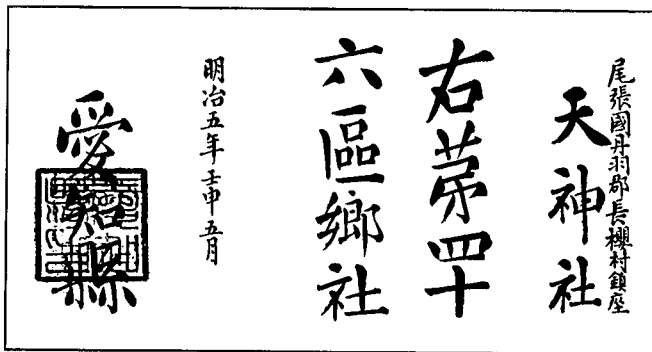 尾張國丹羽郡長櫻村鎮座
天神社
右苐四十
六區鄉社
明治五年壬申五月
愛知縣